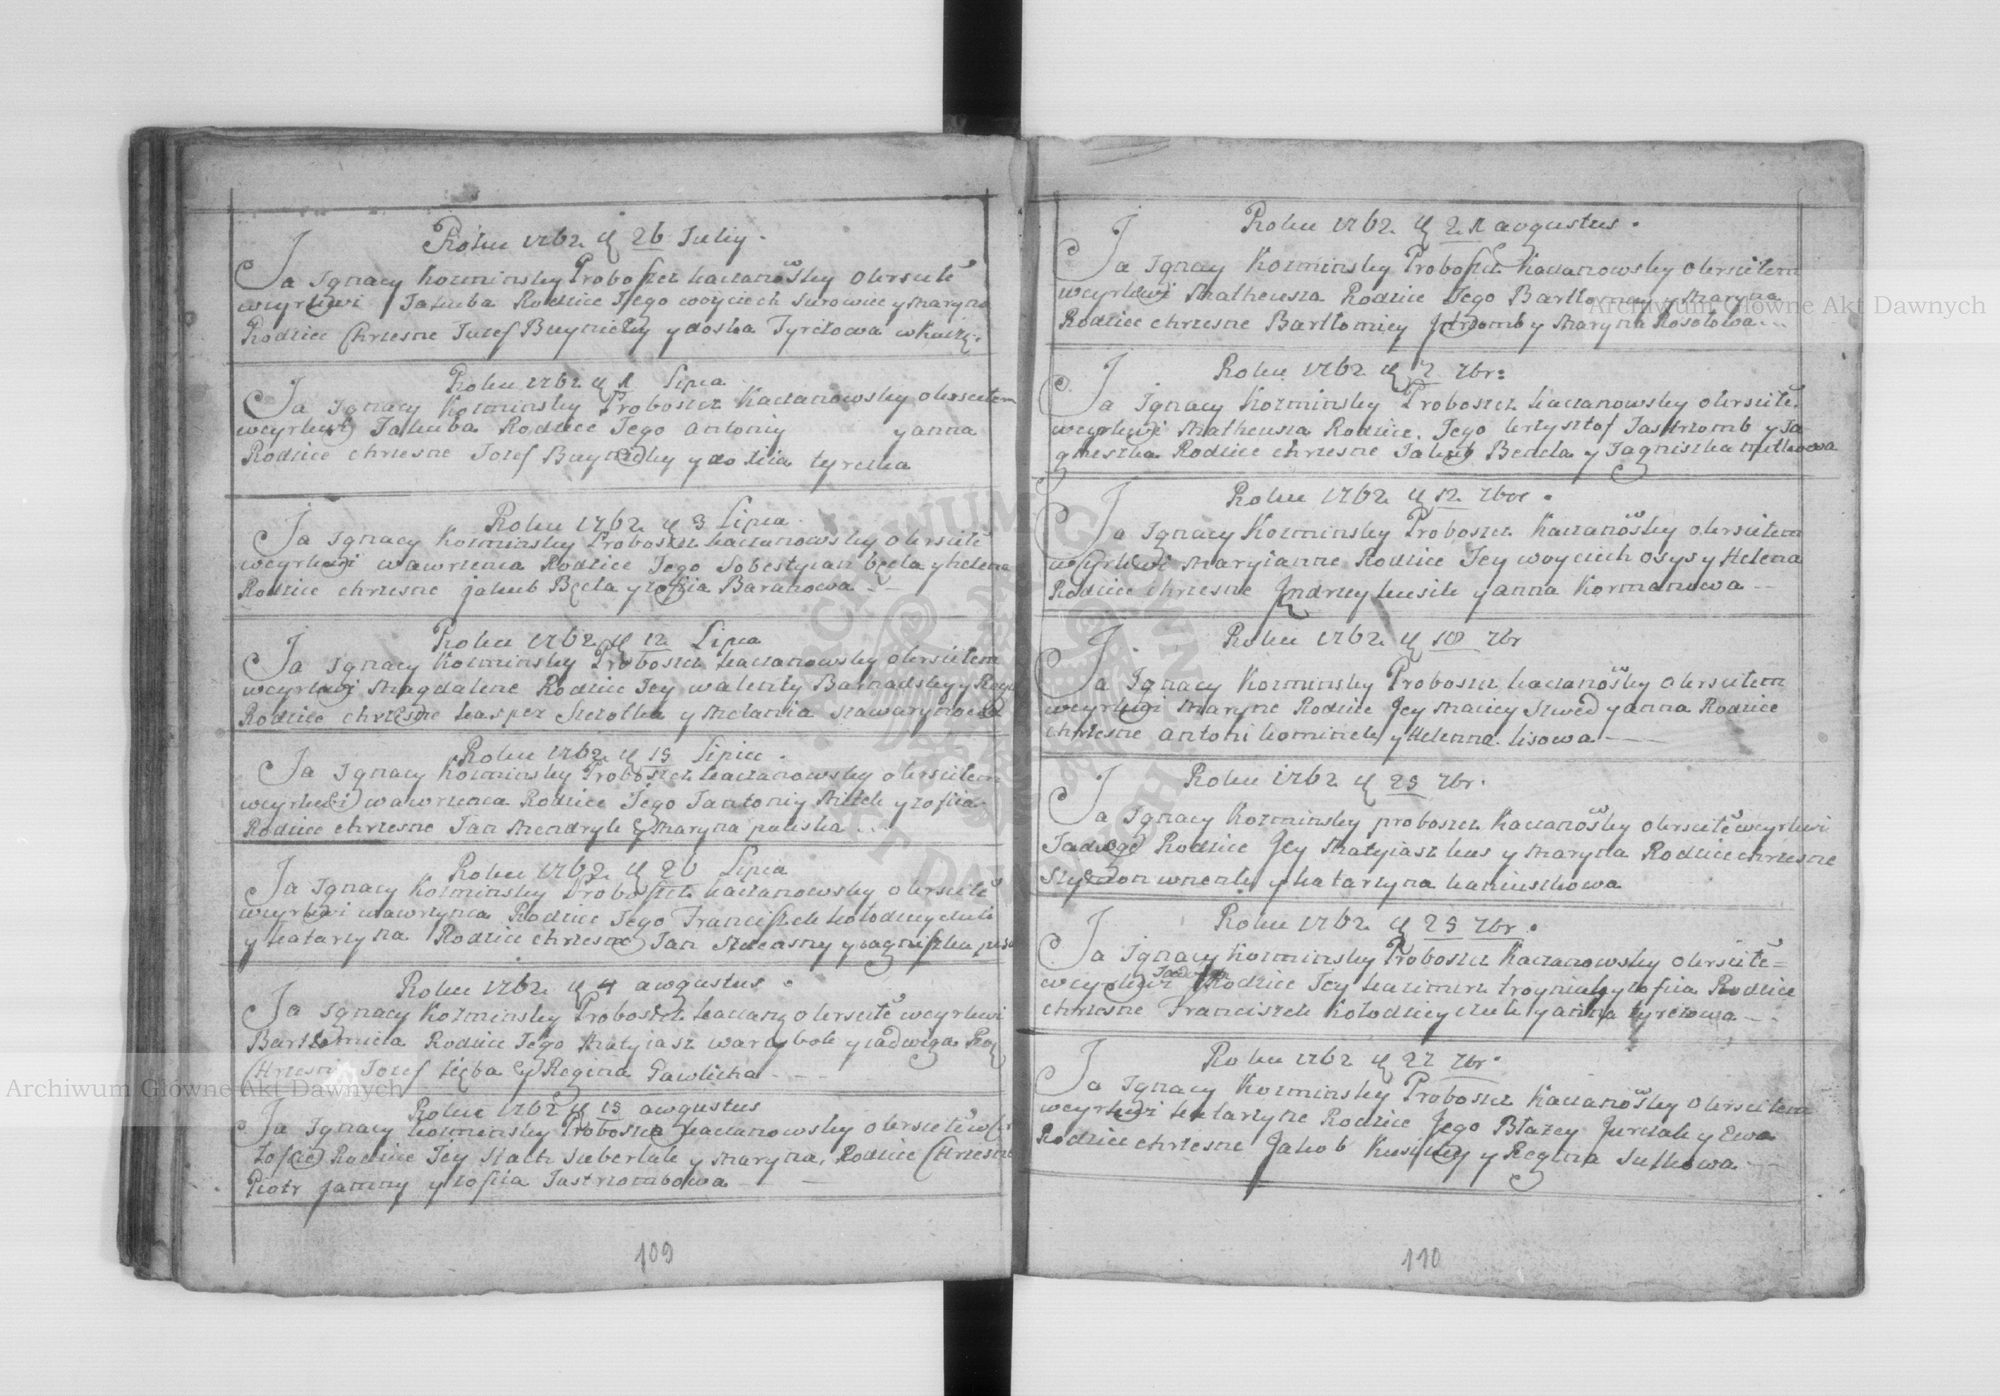 Roku 1762 d 26 Julij.
Ja Ignacy Kozminsky Proboszcz kaczanowsky okrsciłē
wcyrkwi Jakuba Rodzice Jego woyciech surowiec y Maryna
Rodzice Chrzesne Jozef Buynicky y doska Tyrcłowa
Roku 1762 d 1 Lipca
Ja Ignacy Kozminsky Proboszcz Kaczanowsky okrsciłem
wcyrkwi Jakuba Rodzice Jego antoniy y anna
Rodzice chrzesne Jozef Buynicky y doscia tyrczka
Roku 1762 d 3 Lipca
Ja Ignacy Kozminsky Proboszcz kaczanowsky okrsciłē
wcyrkwi wawrzenca Rodzice Jego Sobestyian bęcla y helena
Rodzice chrzesne jakub Bęcla y zofiia Baranowa
Roku 1762 d 12 Lipca
Ja Ignacy Kozminsky Proboszcz kaczanowsky okrsciłem
wcyrkwi Magdalene Rodzice Jey walenty Barnadsky y
Rodzice chrzesne kasper Szczotka y Melania
Roku 1762 d 15 Lipca.
Ja Ignacy Kozminsky Proboszcz kaczanowsky okrsciłem
wcyrkwi wawrzenca Rodzice Jego Jantoniy Mittek y zofiia
Rodzice chrzesne Jan Mendryk y Maryna paliska
Roku 1762 d 26 Lipca
Ja Ignacy Kozminsky Proboszcz kaczanowsky okrsciłē
wcyrkwi wawrzynca Rodzice Jego Franciszek kołodieyczuk
y katarzyna Rodzice chrzesne Jan Szczesny y Jagniszka
Roku 1762 d 4 awgustus.
Ja Ignacy Kozminsky Proboszcz kaczanq okrsciłē wcyrkwi
Bartłomieia Rodzice Jego Matyiasz warcybok y iadwiga Roz
Chrzesni Jozef Zięba y Regina Pawlicha
Roku 1762 d 15 awgustus
Ja Ignacy kozminsky Proboszcz kaczanowsky okrsciłē
zofiie Rodzice Jey Stach saberlak y Maryna. Rodzice Chrzesne
Piotr jamny y zofiia Jastrzombowa
109
Roku 1762 d 21 avgustus.
Ja Ignacy Kozminsky Proboszcz Kaczanowsky okrsciłem
wcyrkwi Matheusza Rodzice Jego Bartłomiey y Maryna
Rodzice chrzesne Bartłomiey Jstrzomb y Maryna Kosołowa
Roku 1762 d 2 7br:
Ja Ignacy Kozminsky Proboszcz kaczanowsky okrsciłē
wcyrkwi Matheusza Rodzice. Jego krzysztof Jastrzomb y Ja
gneszka Rodzice chrzesne Jakub Bencla y Jagniszka mitkowa
Roku 1762 d 12 7bre.
Ja Ignacy Kozminsky Proboszcz Kaczanoŵsky okrsciłem
wcyrkwi Maryianne Rodzice Jey woyciech osys y Helena
Rodzice chrzesne Jndrzey kusik y anna Kormanowa
Roku 1762 d 18 7br
Ja Ignacy Kozminsky Proboszcz kaczanoŵsky okrsciłem
wcyrkwi Maryne Rodzice Jey Maciey Szwed y anna Rodzice
chrzesne antoni kominek y Helenna lisowa
Roku 1762 d 25 7br.
Ja Ignacy Kozminsky proboszcz Kaczanoŵsky okrsciłē wcyrkwi
Jadwige Rodzice Jey Matyiasz kus y Maryna Rodzice chrzesne
Szymon wnenk y katarzyna kaniuszkowa
Roku 1762 d 25 7br.
Ja Ignacy Kozminsky Proboszcz Kaczanowsky okrsciłē=
wcyrkwi Jadwige Rodzice Jey kazimirz troyniak y zofiia Rodzice
chrzesne Franciszek Kołodieyczuk y anna tyrcowa
Roku 1762 d 27 7br.
Ja Ignacy Kozminsky Proboszcz Kaczanoŵsky okrsciłem
wcyrkwi katarzyne Rodzice Jego Błazey Jurczak y Ewa
Rodzice chrzesne Jakob Kusik y Regina Sulkowa
110
Archiwum Główne Akt Dawnych
Archiwum Główne Akt Dawnych
ARCHIWUM GŁÓWNE AKT DAWNYCH